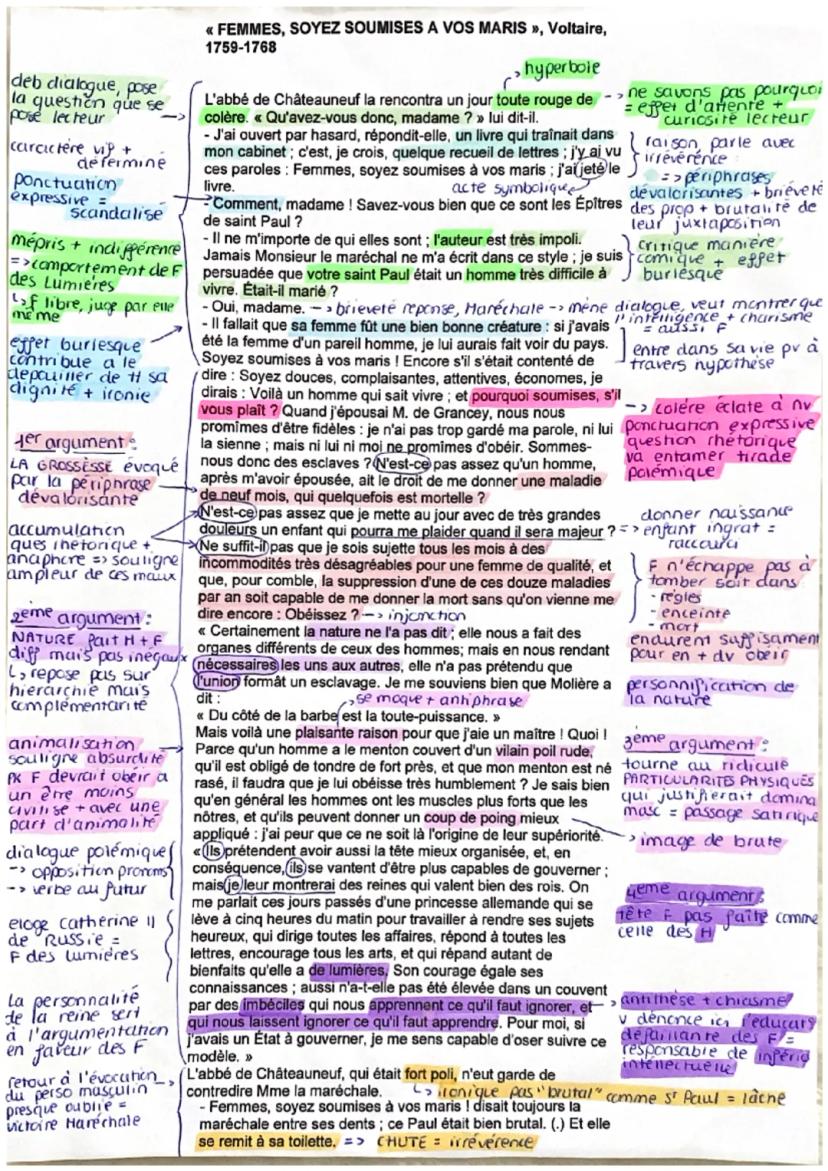 « FEMMES, SOYEZ SOUMISES A VOS MARIS », Voltaire,
1759-1768
hyperbole
déb dialogue, pose
la question que se
pose lecteur
caractère vif +
déterminé
ponctuation
expressive =
scandalisé
mépris + indifférence
=> comportement de F
des Lumières
↳ F libre, juge par elle
même
effet burlesque
contribue a le
dépouiller de tt sa
dignité + ironie
1er argument :
LA GROSSESSE évoqué
par la périphrase
dévalorisante
accumulation
ques rhétorique +
anaphore => souligne
ampleur de ces maux
2ème argument :
NATURE fait H + F
diff mais pas inégaux
↳ repose pas sur
hierarchie mais
complémentarité
animalisation
souligne absurdité
PK F devrait obéir à
un être moins
civilisé + avec une
part d'animalité
dialogue polémique
-> opposition pronoms
-> verbe au futur
eloge Catherine II
de Russie =
F des lumières
La personnalité
de la reine sert
à l'argumentation
en faveur des F
retour à l'évocation
du perso masculin
presque oublié =
victoire Maréchale
L'abbé de Châteauneuf la rencontra un jour toute rouge de
colère. « Qu'avez-vous donc, madame ? » lui dit-il.
- J'ai ouvert par hasard, répondit-elle, un livre qui traînait dans
mon cabinet ; c'est, je crois, quelque recueil de lettres ; j'y ai vu
ces paroles : Femmes, soyez soumises à vos maris ; j'ai jeté le
livre.
acte symbolique
- Comment, madame ! Savez-vous bien que ce sont les Épîtres
de saint Paul ?
- Il ne m'importe de qui elles sont ; l'auteur est très impoli.
Jamais Monsieur le maréchal ne m'a écrit dans ce style ; je suis
persuadée que votre saint Paul était un homme très difficile à
vivre. Était-il marié ?
- Oui, madame. -> brieveté reponse, Maréchale -> mène dialogue, veut montrer que
l'intelligence + charisme
= aussi F
- Il fallait que sa femme fût une bien bonne créature : si j'avais
été la femme d'un pareil homme, je lui aurais fait voir du pays.
Soyez soumises à vos maris ! Encore s'il s'était contenté de
dire : Soyez douces, complaisantes, attentives, économes, je
dirais : Voilà un homme qui sait vivre ; et pourquoi soumises, s'il
vous plaît ? Quand j'épousai M. de Grancey, nous nous
promîmes d'être fidèles : je n'ai pas trop gardé ma parole, ni lui
la sienne ; mais ni lui ni moi ne promîmes d'obéir. Sommes-
nous donc des esclaves ? N'est-ce pas assez qu'un homme,
après m'avoir épousée, ait le droit de me donner une maladie
de neuf mois, qui quelquefois est mortelle ?
N'est-ce pas assez que je mette au jour avec de très grandes
douleurs un enfant qui pourra me plaider quand il sera majeur ?
Ne suffit-il pas que je sois sujette tous les mois à des
incommodités très désagréables pour une femme de qualité, et
que, pour comble, la suppression d'une de ces douze maladies
par an soit capable de me donner la mort sans qu'on vienne me
dire encore : Obéissez ? -> injonction
« Certainement la nature ne l'a pas dit ; elle nous a fait des
organes différents de ceux des hommes; mais en nous rendant
nécessaires les uns aux autres, elle n'a pas prétendu que
l'union formât un esclavage. Je me souviens bien que Molière a
dit :
se moque + antiphrase
« Du côté de la barbe est la toute-puissance. »
Mais voilà une plaisante raison pour que j'aie un maître ! Quoi !
Parce qu'un homme a le menton couvert d'un vilain poil rude,
qu'il est obligé de tondre de fort près, et que mon menton est né
rasé, il faudra que je lui obéisse très humblement ? Je sais bien
qu'en général les hommes ont les muscles plus forts que les
nôtres, et qu'ils peuvent donner un coup de poing mieux
appliqué : j'ai peur que ce ne soit là l'origine de leur supériorité.
« Ils prétendent avoir aussi la tête mieux organisée, et, en
conséquence, ils se vantent d'être plus capables de gouverner ;
mais je leur montrerai des reines qui valent bien des rois. On
me parlait ces jours passés d'une princesse allemande qui se
lève à cinq heures du matin pour travailler à rendre ses sujets
heureux, qui dirige toutes les affaires, répond à toutes les
lettres, encourage tous les arts, et qui répand autant de
bienfaits qu'elle a de lumières. Son courage égale ses
connaissances ; aussi n'a-t-elle pas été élevée dans un couvent
par des imbéciles qui nous apprennent ce qu'il faut ignorer, et
qui nous laissent ignorer ce qu'il faut apprendre. Pour moi, si
j'avais un État à gouverner, je me sens capable d'oser suivre ce
modèle. »
L'abbé de Châteauneuf, qui était fort poli, n'eut garde de
contredire Mme la maréchale.
↳ ironique pas "brutal" comme St Paul = lâche
- Femmes, soyez soumises à vos maris ! disait toujours la
maréchale entre ses dents ; ce Paul était bien brutal. (.) Et elle
se remit à sa toilette. => CHUTE = irrévérence
-> ne savons pas pourquoi
= effet d'attente +
curiosité lecteur
raison parle avec
irrévérence
=> périphrases
dévalorisantes + brièveté
des prop + brutalité de
leur juxtaposition
critique manière
comique + effet
burlesque
entre dans sa vie pv à
travers hypothèse
-> colère éclate à nv
ponctuation expressive
question rhétorique
va entamer tirade
polémique
donner naissance
=> enfant ingrat =
raccourci
F n'échappe pas à
tomber soit dans
- règles
- enceinte
- mort
endurent suffisament
pour en + dv obeir
personnification de
la nature
3ème argument :
tourne au ridicule
PARTICULARITÉS PHYSIQUES
qui justifierait domina
masc = passage satirique
-> image de brute
4ème argument :
tête F pas faite comme
celle des H
antithèse + chiasme
V dénonce ici l'éducat°
défaillante des F =
responsable de infério
intellectuelle